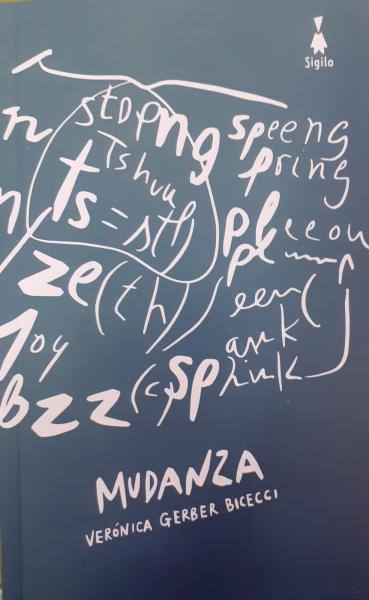 Sigilo
n stopng speeng
Tshuu pring
n ts = stl) pleeou
plump
ze (th) / een (
1oy ark
bzz (c) sp hink
MUDANZA
VERÓNICA GERBER BICECCI